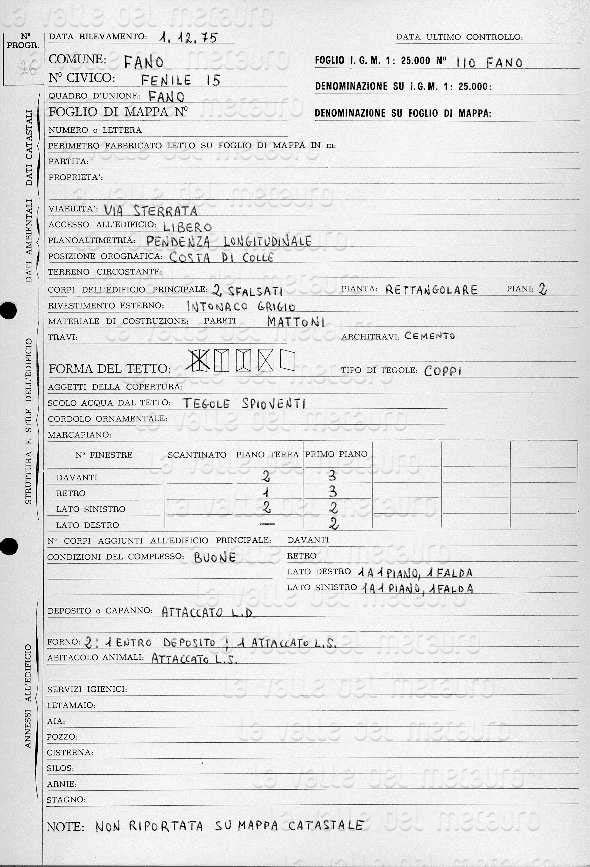 N° PROGR.
16
DATA RILEVAMENTO: 1.12.75 DATA ULTIMO CONTROLLO:
COMUNE: FANO FOGLIO I.G.M. 1: 25.000 N° 110 FANO
N° CIVICO: FENILE 15 DENOMINAZIONE SU I.G.M. 1: 25.000:
QUADRO D'UNIONE: FANO
FOGLIO DI MAPPA N° DENOMINAZIONE SU FOGLIO DI MAPPA:
NUMERO o LETTERA
PERIMETRO FABBRICATO LETTO SU FOGLIO DI MAPPA IN m:
PARTITA:
PROPRIETA':
DATI CATASTALI
VIABILITA': VIA STERRATA
ACCESSO ALL'EDIFICIO: LIBERO
PLANOALTIMETRIA: PENDENZA LONGITUDINALE
POSIZIONE OROGRAFICA: COSTA DI COLLE
TERRENO CIRCOSTANTE:
DATI AMBIENTALI
CORPI DELL'EDIFICIO PRINCIPALE: 2 SFALSATI PIANTA: RETTANGOLARE PIANI: 2
RIVESTIMENTO ESTERNO: INTONACO GRIGIO
MATERIALE DI COSTRUZIONE: PARETI MATTONI
TRAVI: ARCHITRAVI: CEMENTO
FORMA DEL TETTO: TIPO DI TEGOLE: COPPI
AGGETTI DELLA COPERTURA:
SCOLO ACQUA DAL TETTO: TEGOLE SPIOVENTI
CORDOLO ORNAMENTALE:
MARCAPIANO:
N° FINESTRE SCANTINATO PIANO TERRA PRIMO PIANO
DAVANTI 2 3
RETRO 1 3
LATO SINISTRO 2 2
LATO DESTRO — 2
STRUTTURA E STILE DELL'EDIFICIO
N° CORPI AGGIUNTI ALL'EDIFICIO PRINCIPALE: DAVANTI
CONDIZIONI DEL COMPLESSO: BUONE RETRO
LATO DESTRO 1 A 1 PIANO, 1 FALDA
LATO SINISTRO 1 A 1 PIANO, 1 FALDA
DEPOSITO o CAPANNO: ATTACCATO L.D.
FORNO: 2: 1 ENTRO DEPOSITO; 1 ATTACCATO L.S.
ABITACOLO ANIMALI: ATTACCATO L.S.
SERVIZI IGIENICI:
LETAMAIO:
AIA:
POZZO:
CISTERNA:
SILOS:
ARNIE:
STAGNO:
ANNESSI ALL'EDIFICIO
NOTE: NON RIPORTATA SU MAPPA CATASTALE
la valle del metauro